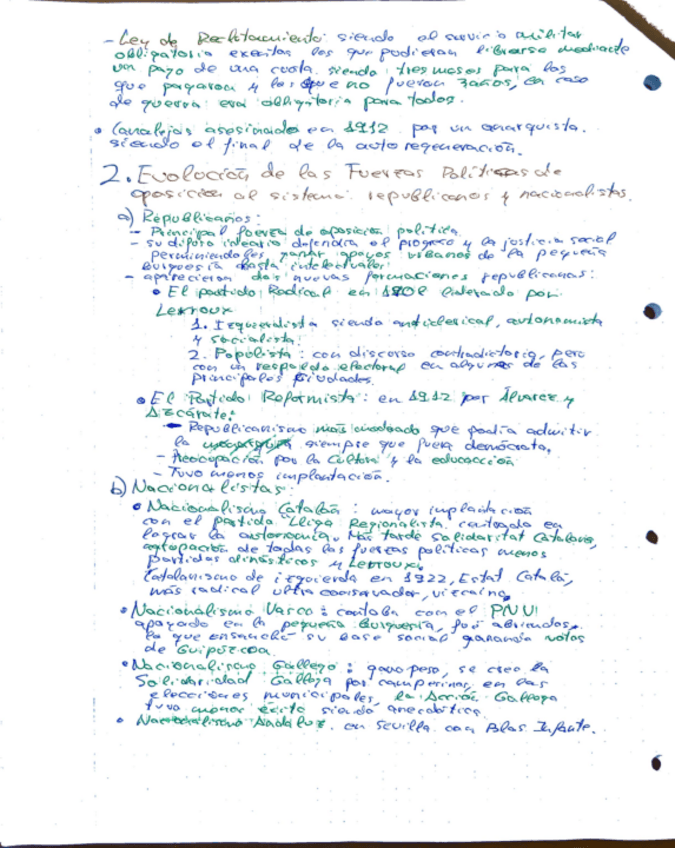 - Ley de Reclutamiento: siendo el servicio militar
obligatorio exentos los que pudieran librarse mediante
un pago de una cuota, siendo tres meses para los
que pagaron y los que no fueron 3años, en caso
de guerra era obligatoria para todos.
• Canalejas asesinado en 1912 por un anarquista.
siendo el final de la auto regeneración.
2. Evolución de las Fuerzas Políticas de
oposición al sistema: republicanos y nacionalistas.
a) Republicanos:
- Principal fuerza de oposición política.
- su difuso ideario defendía el progreso y la justicia social
permitiendoles ganar apoyos urbanos de la pequeña
burguesía hasta intelectuales
- aparecieron dos nuevas formaciones republicanas:
• El partido Radical en 1908 liderado por
Lerroux
1. Izquierdista siendo anticlerical, autonomista
y socialista.
2. Populista: con discurso contradictorio, pero
con un respaldo electoral en algunas de las
principales ciudades.
• El Partido Reformista: en 1912 por Álvarez y
Azcárate:
- Republicanismo más moderado que podía admitir
la monarquía siempre que fuera demócrata.
- Preocupación por la Cultura y la educacción
- Tuvo menos implantación.
b) Nacionalistas:
• Nacionalismo Catalán: mayor implantación
con el partido Lliga Regionalista, centrado en
lograr la autonomía. Más tarde Solidaritat Catalana,
agrupación de todas las fuerzas políticas menos
partidos dinásticos y Lerroux.
Catalanismo de izquierda en 1922, Estat Català,
más radical ultra conservador,
• Nacionalismo Vasco: contaba con el PNV
apoyado en la pequeña Burguesía, fue abriendose
lo que ensanchó su base social ganando votos
de Guipúzcoa.
• Nacionalismo Gallego: gano peso, se creo la
Solidaridad Gallega por campesinos en las
elecciones municipales, la Acción Gallega
tuvo menor éxito siendo anecdótica.
• Nacionalismo Andaluz. en Sevilla con Blas Infante.